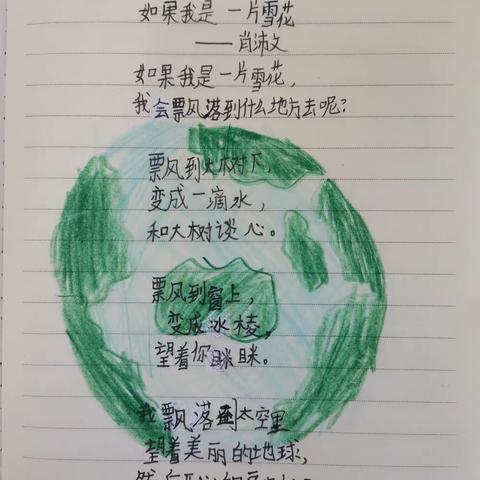 如果我是一片雪花
——肖沐文
如果我是一片雪花，
我会飘落到什么地方去呢？
飘到大树下，
变成一滴水，
和大树谈心。
飘到窗上，
变成冰棱，
望着你眯眯。
我飘落到太空里
望着美丽的地球，